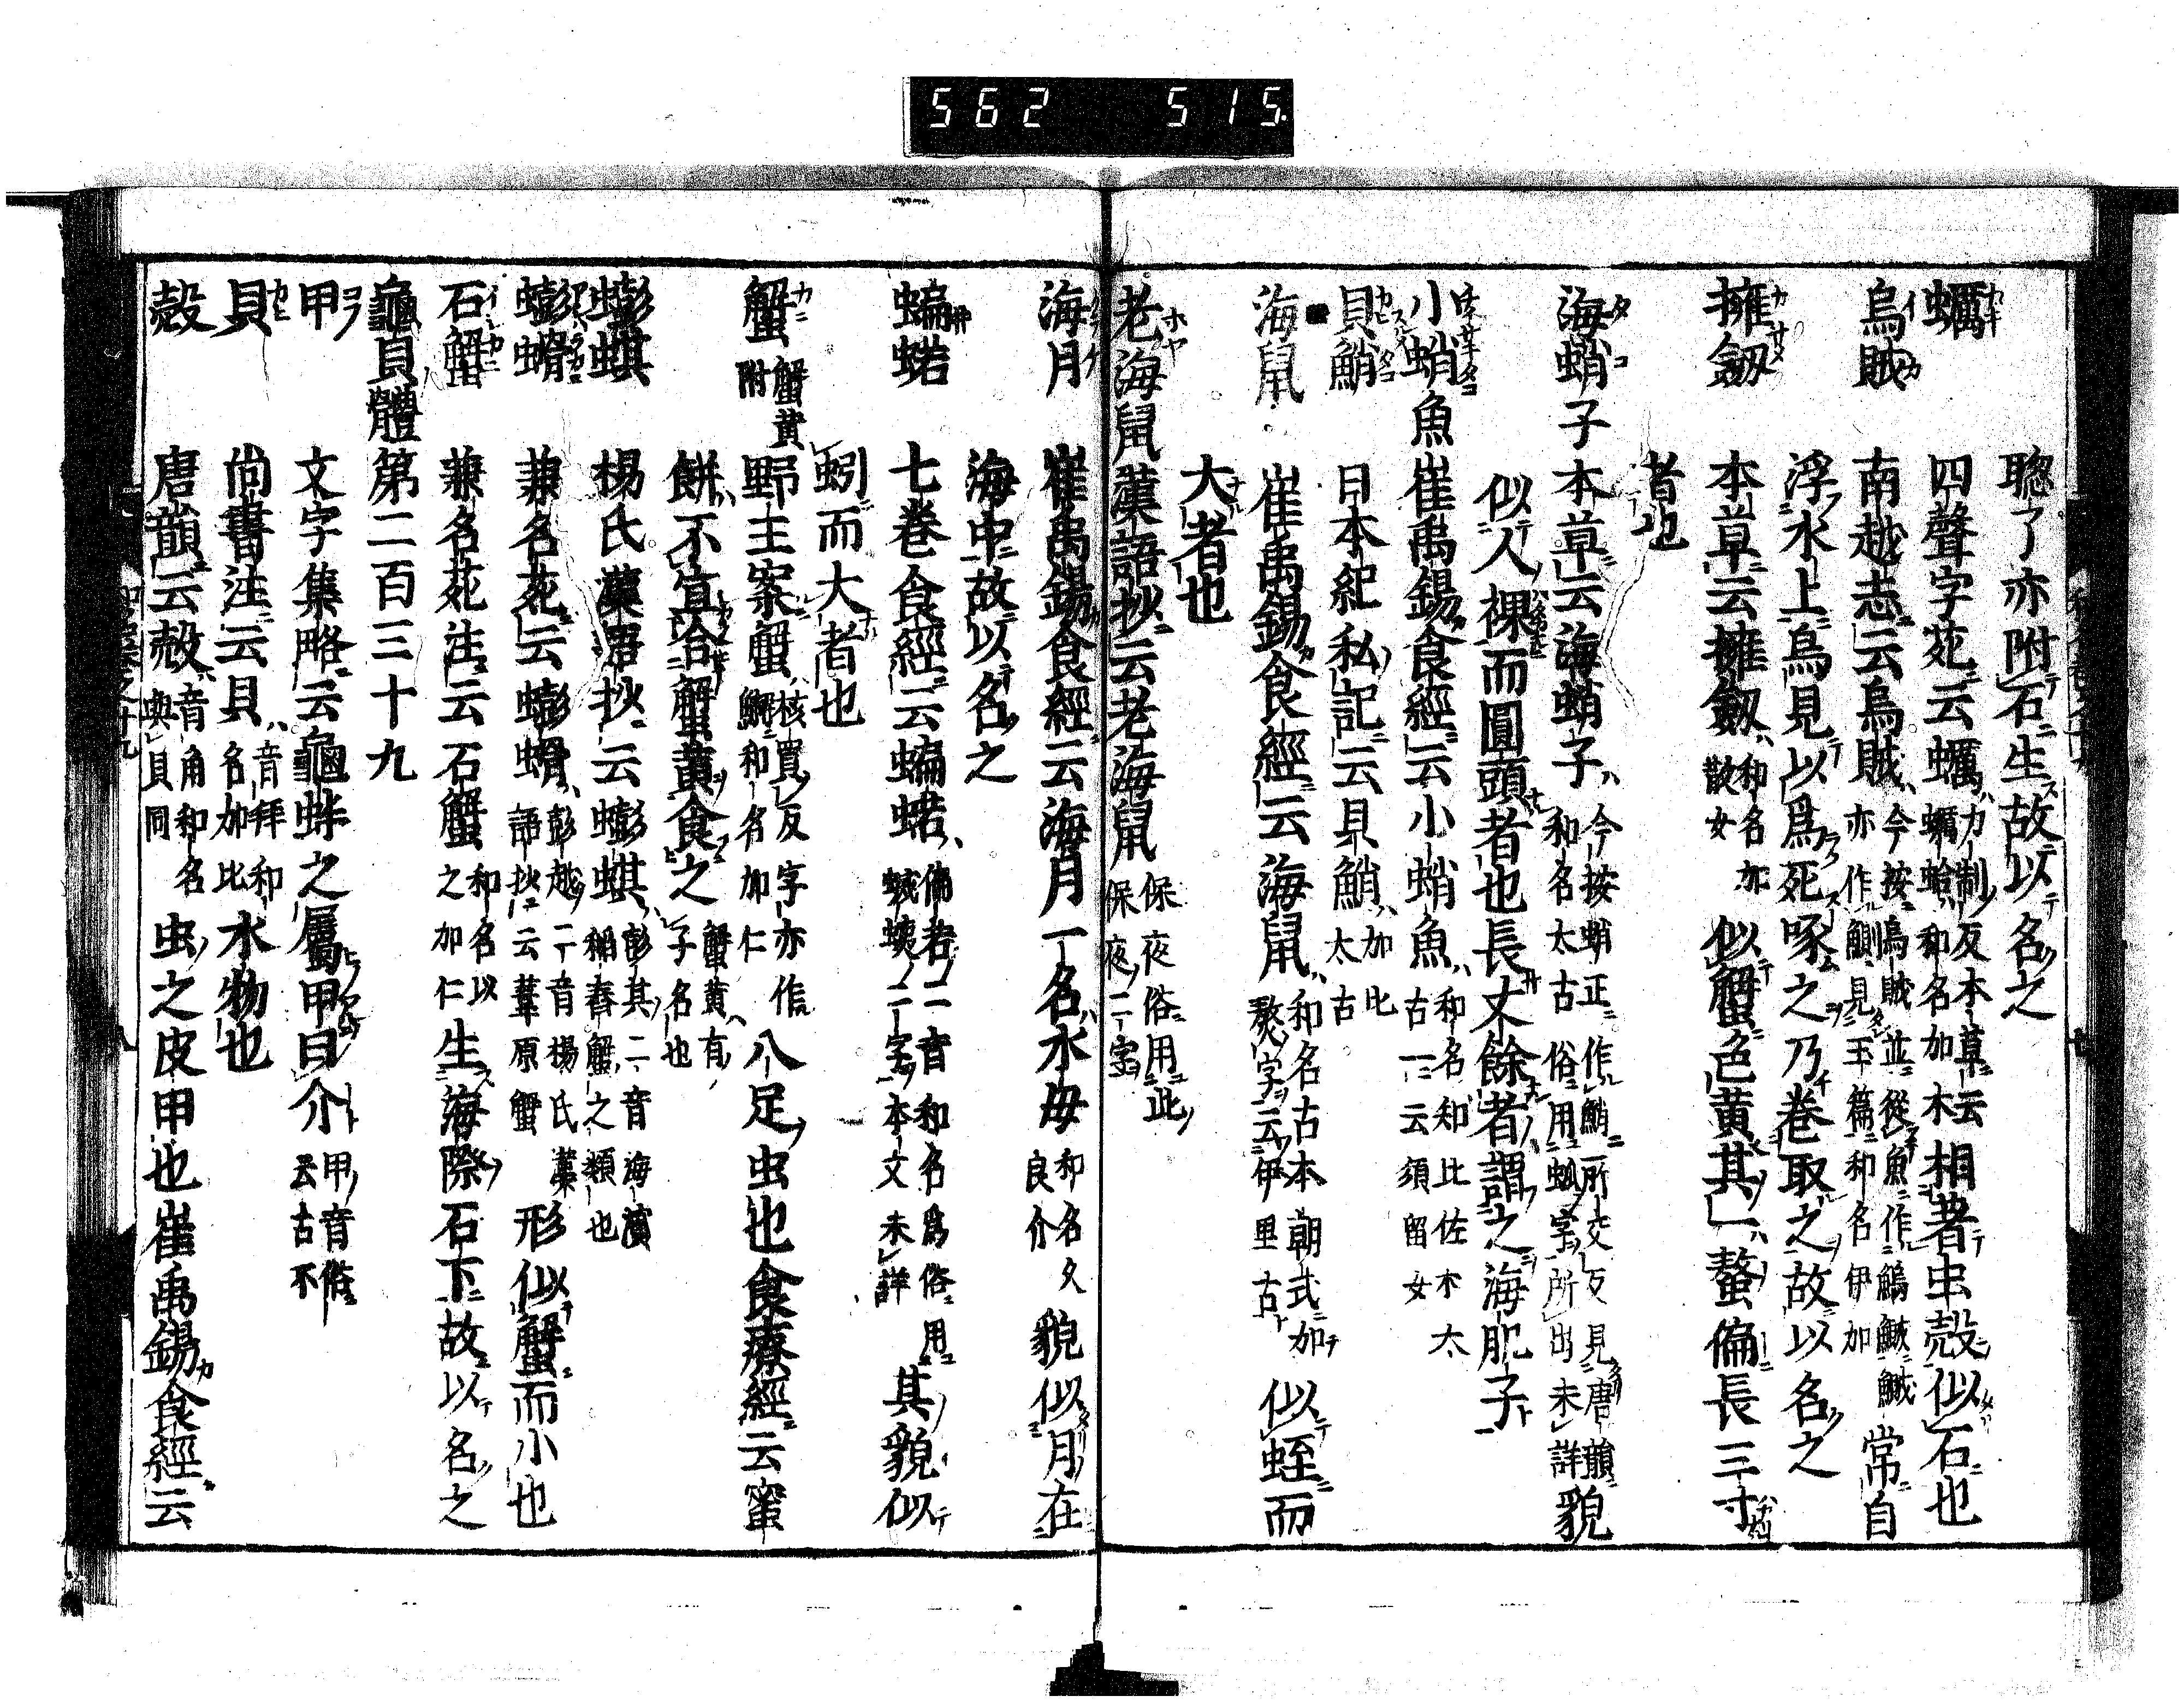 562 515
聰了亦附石生故以名之
蠣 四聲字苑云蠣力制反本草云蠣蛤和名加木相著虫殻似石也
烏賊 南越志云烏賊今按烏賊並從魚作鰞鱡亦作鰂見玉篇和名伊加常自
浮水上烏見以爲死啄之乃巻取之故以名之
擁劔 本草云擁劔和名加散女似蟹色黄其一螯偏長三寸
者也
海蛸子 本草云海蛸子今按蛸正作鮹所交反見唐韻和名太古俗用䖧字所出未詳貌
似人裸而圓頭者也長丈餘者謂之海肥子
小蛸魚 崔禹錫食經云小蛸魚和名知比佐木太古一云須留女
貝鮹 日本紀私記云貝鮹加比太古
海鼠 崔禹錫食經云海鼠和名古本朝式加熬字云伊里古似蛭而
大者也
老海鼠 漢語抄云老海鼠保夜俗用此保夜二字
海月 崔禹錫食經云海月一名水母和名久良介貌似月在
海中故以名之
蝙蛞 七巻食經云蝙蛞
蚓而大者也
蟹 蟹黄附 野王案蟹核買反字亦作䲒和名加仁八足虫也食療經云蜜
餅不宜合蟹黄食之蟹黄有子名也
蟛蜞 楊氏漢語抄云蟛蜞彭其二音海濱稲舂蟹之類也
蟛螖 兼名苑云蟛螖彭越二音楊氏漢語抄云葦原蟹形似蟹而小也
石蟹 兼名苑注云石蟹和名以之加仁生海際石下故以名之
龜貝體第二百三十九
甲 文字集略云龜蚌之屬甲曰介甲音俗云古不
貝 尚書注云貝音拜和名加比水物也
殻 唐韻云殻音角和名與貝同虫之皮甲也崔禹錫食經云